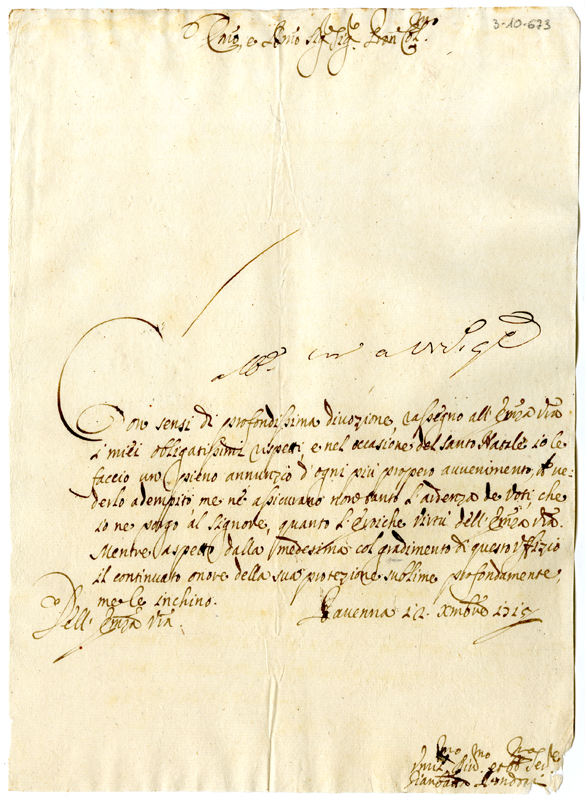 3-10-673
Em̃o, e Rmo Sig.re Sig. Pron Col.mo
Con sensi di profondissima divozione, rassegno all' Emza Vrã
i miei obligatissimi rispetti, e nel occasione del Santo Natale io le
faccio un pieno annunzio d'ogni più prospero avvenimento, e ve-
derlo adempito me ne assicurano non tanto l'ardenza de voti, che
io ne porgo al Signore, quanto l'eroiche virtù dell' Emza Vrã.
Mentre aspetto dalla medesima col gradimento di questo uffizio
il continuato onore della sua protezione sublime profondamente
me le inchino.
Dell' Emza Vrã
Ravenna 12. Xmbre 1715